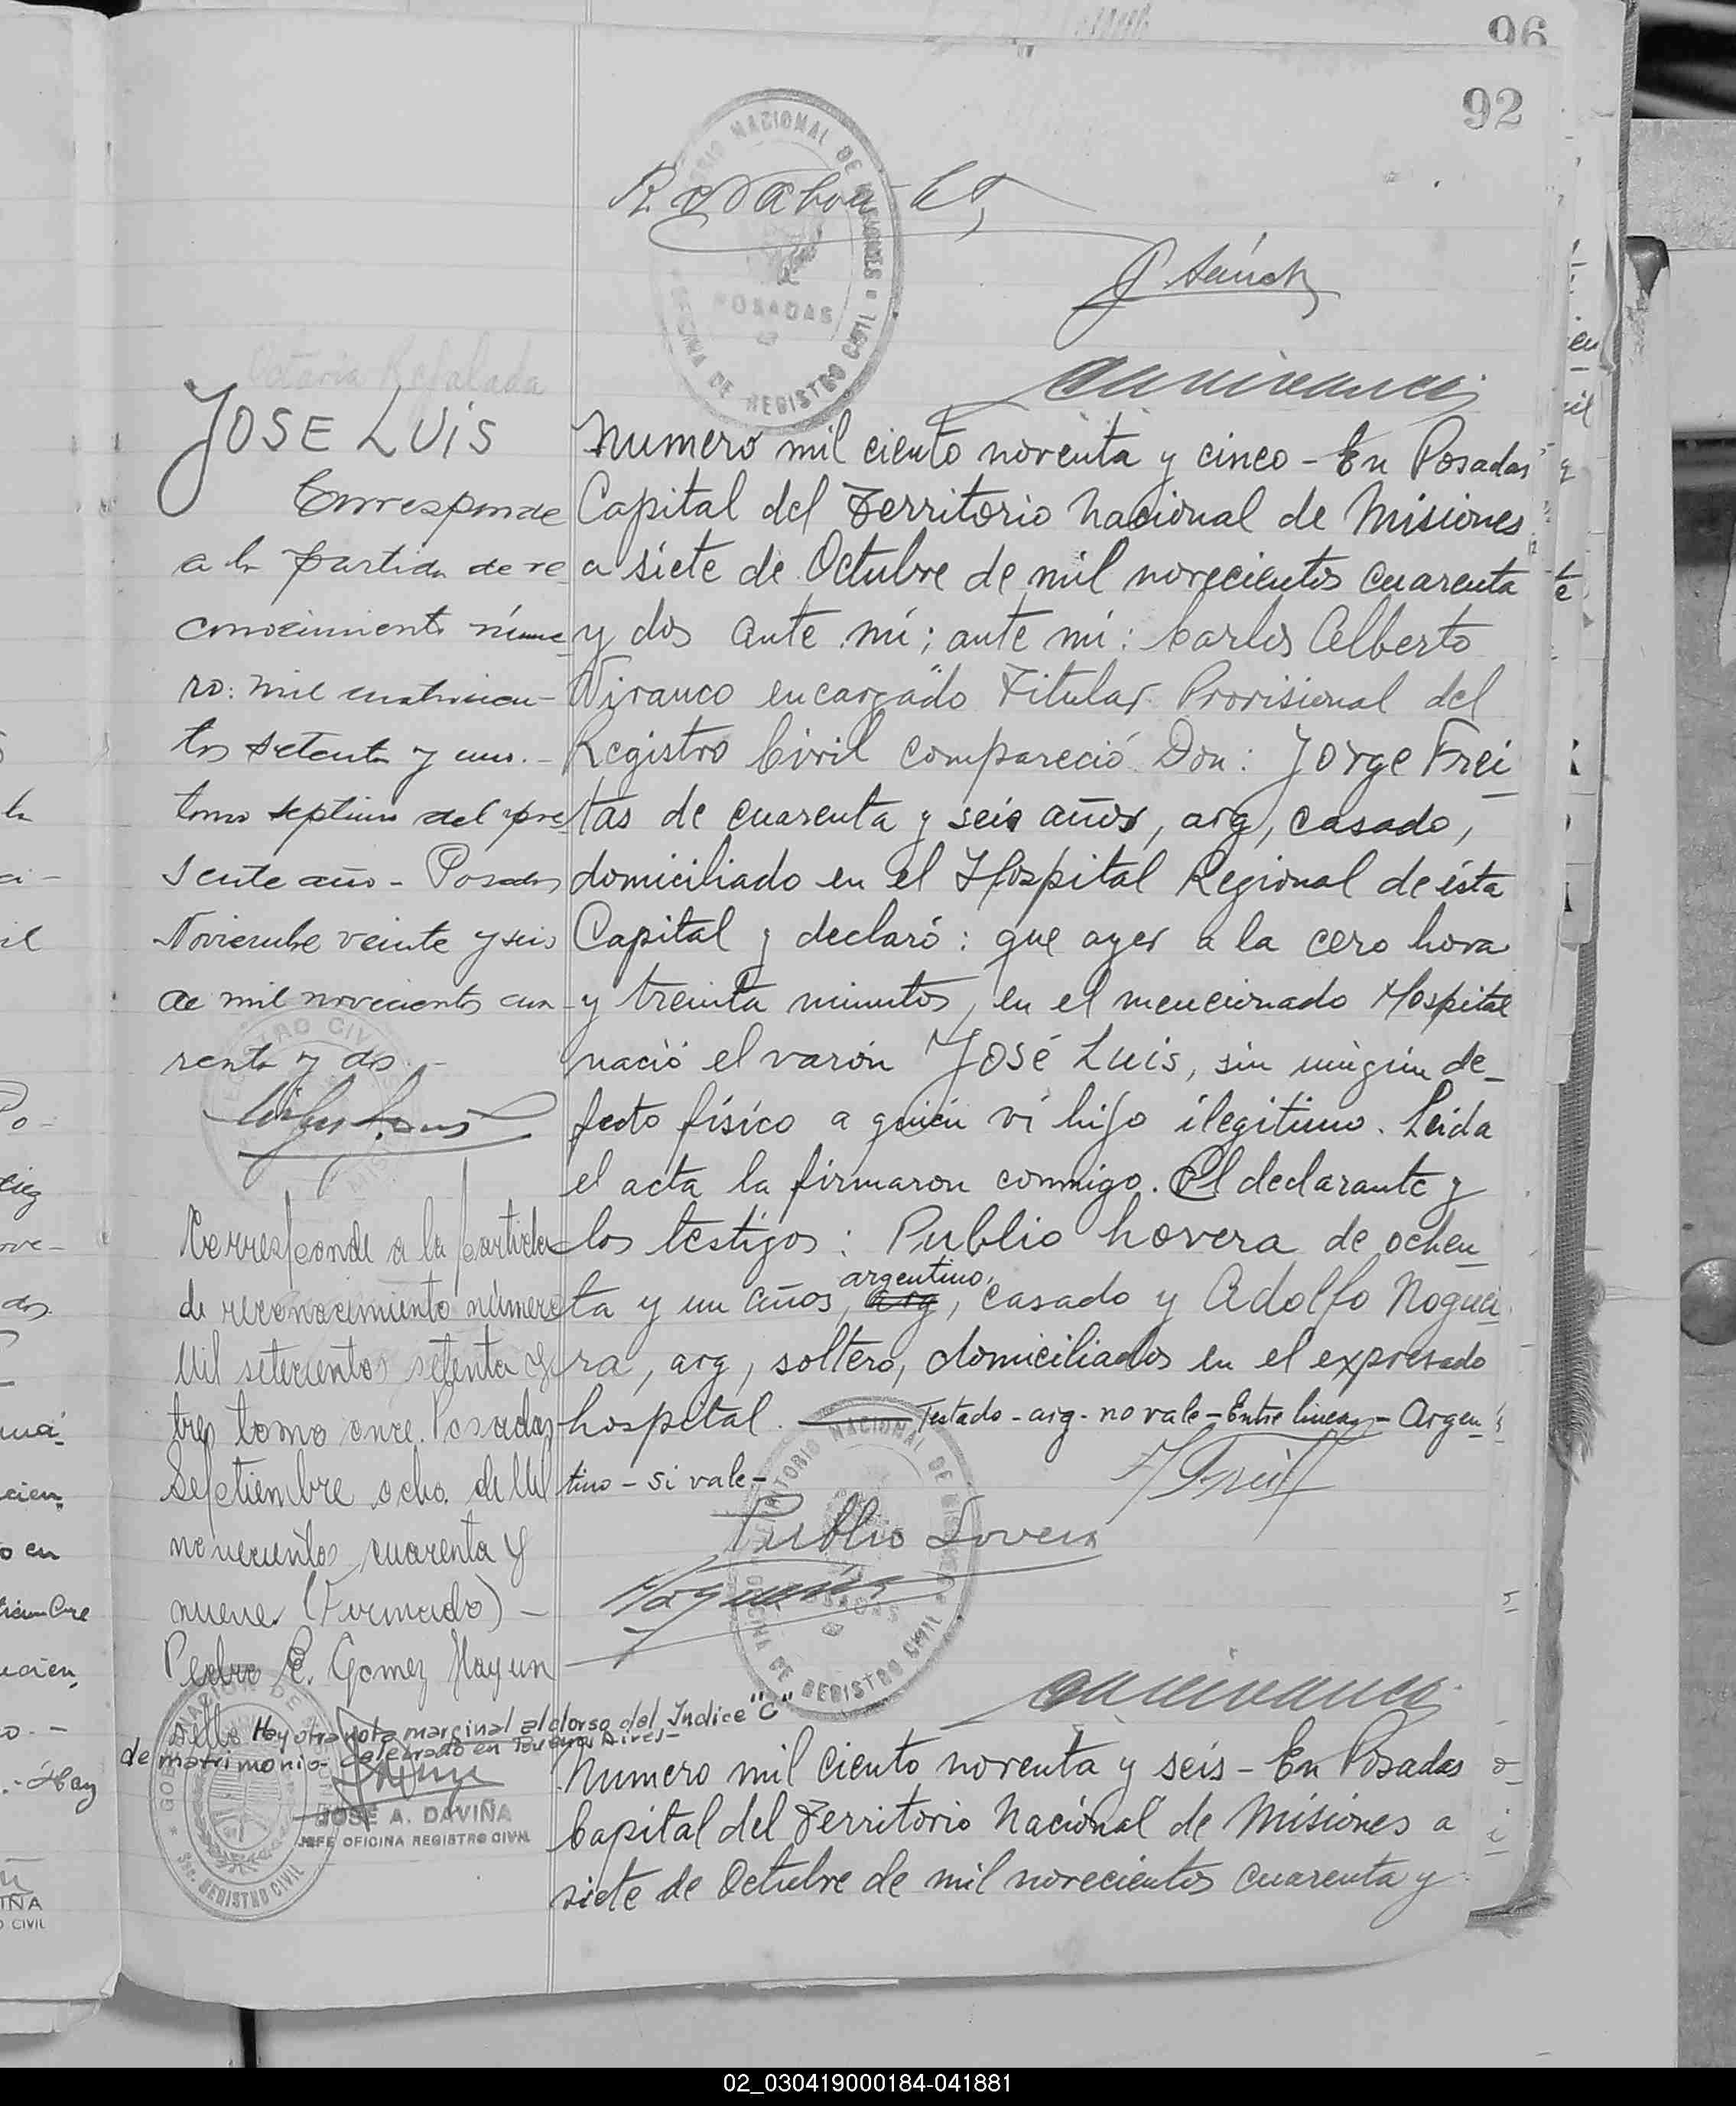 96
92
TERRITORIO NACIONAL DE MISIONES
POSADAS
OFICINA DE REGISTRO CIVIL
JOSE LUIS
Corresponde
a la partida de re
conocimiento núme
ro: mil cuatrocien-
tos setenta y uno.-
tomo septimo del pre
sente año - Posadas
Noviembre veinte y seis
de mil novecientos cua
renta y dos -
Corresponde a la partida
de reconocimiento número
Mil setecientos setenta y
tres tomo once. Posadas
Septiembre ocho de Mil
novecientos cuarenta y
nueve. (Firmado) -
Pedro C. Gomez Hayun
sello Hay otra nota marginal al dorso del Indice "C"
de matrimonio - celebrado en Buenos Aires-
JOSE A. DAVIÑA
JEFE OFICINA REGISTRO CIVIL
Sec. REGISTRO CIVIL
Numero mil ciento noventa y cinco - En Posadas
Capital del Territorio Nacional de Misiones
a siete de Octubre de mil novecientos cuarenta
y dos ante mí; ante mi: Carlos Alberto
Niranco encargado Titular Provisional del
Registro Civil compareció Don: Jorge Frei
tas de cuarenta y seis años, arg, casado,
domiciliado en el Hospital Regional de ésta
Capital y declaró: que ayer a la cero hora
y treinta minutos, en el mencionado Hospital
nació el varón José Luis, sin ningún de-
fecto físico a quién vi hijo ilegitimo. Leida
el acta la firmaron conmigo. El declarante y
los testigos: Publio Lovera de ochen
ta y un años, arg, argentino, casado y Adolfo Noguei
ra, arg, soltero, domiciliados en el expresado
hospital. Testado - arg - no vale - Entre lineas - Argen
tino - si vale -
Publio Lovera
TERRITORIO NACIONAL DE MISIONES
POSADAS
OFICINA DE REGISTRO CIVIL
Numero mil ciento noventa y seis - En Posadas
Capital del Territorio Nacional de Misiones a
siete de Octubre de mil novecientos cuarenta y
02_030419000184-041881